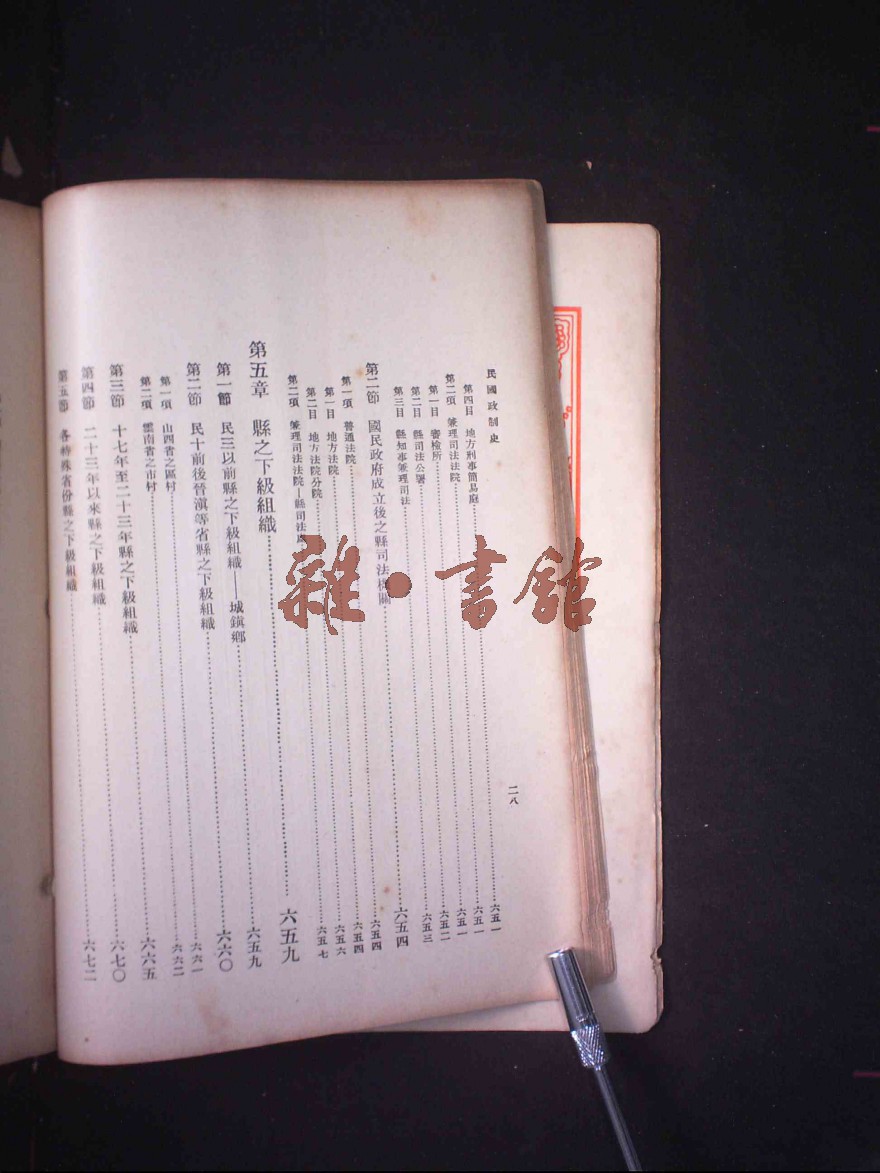 民國政制史 二八
第四目 地方刑事簡易庭 六五一
第二項 兼理司法法院 六五一
第一目 審檢所 六五一
第二目 縣司法公署 六五二
第三目 縣知事兼理司法 六五三
第二節 國民政府成立後之縣司法機關 六五四
第一項 普通法院 六五四
第一目 地方法院 六五四
第二目 地方法院分院 六五六
第二項 兼理司法法院—縣司法 六五七
第五章 縣之下級組織 六五九
第一節 民三以前縣之下級組織——城鎮鄉 六五九
第二節 民十前後晉滇等省縣之下級組織 六六〇
第一項 山西省之區村 六六一
第二項 雲南省之市村 六六二
第三節 十七年至二十三年縣之下級組織 六六五
第四節 二十三年以來縣之下級組織 六七〇
第五節 各特殊省份縣之下級組織 六七二
雜·書館